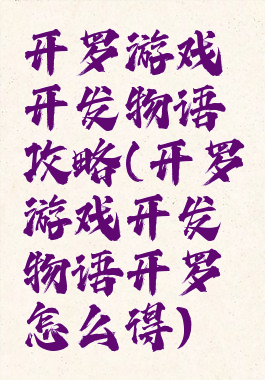 开罗游戏
开发物语
攻略(开罗
游戏开发
物语开罗
怎么得)